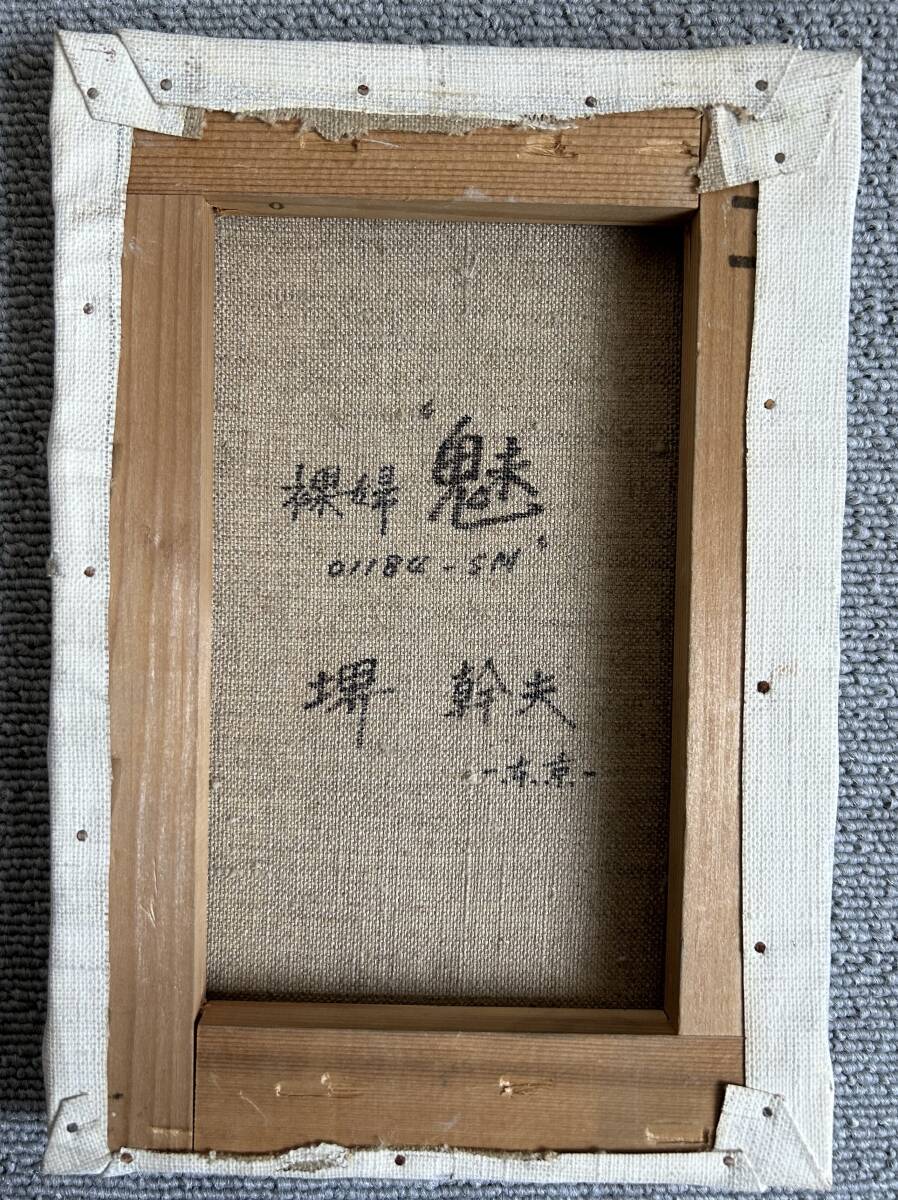 裸婦 "魅"
01184-SM
堺 幹夫
-東京-